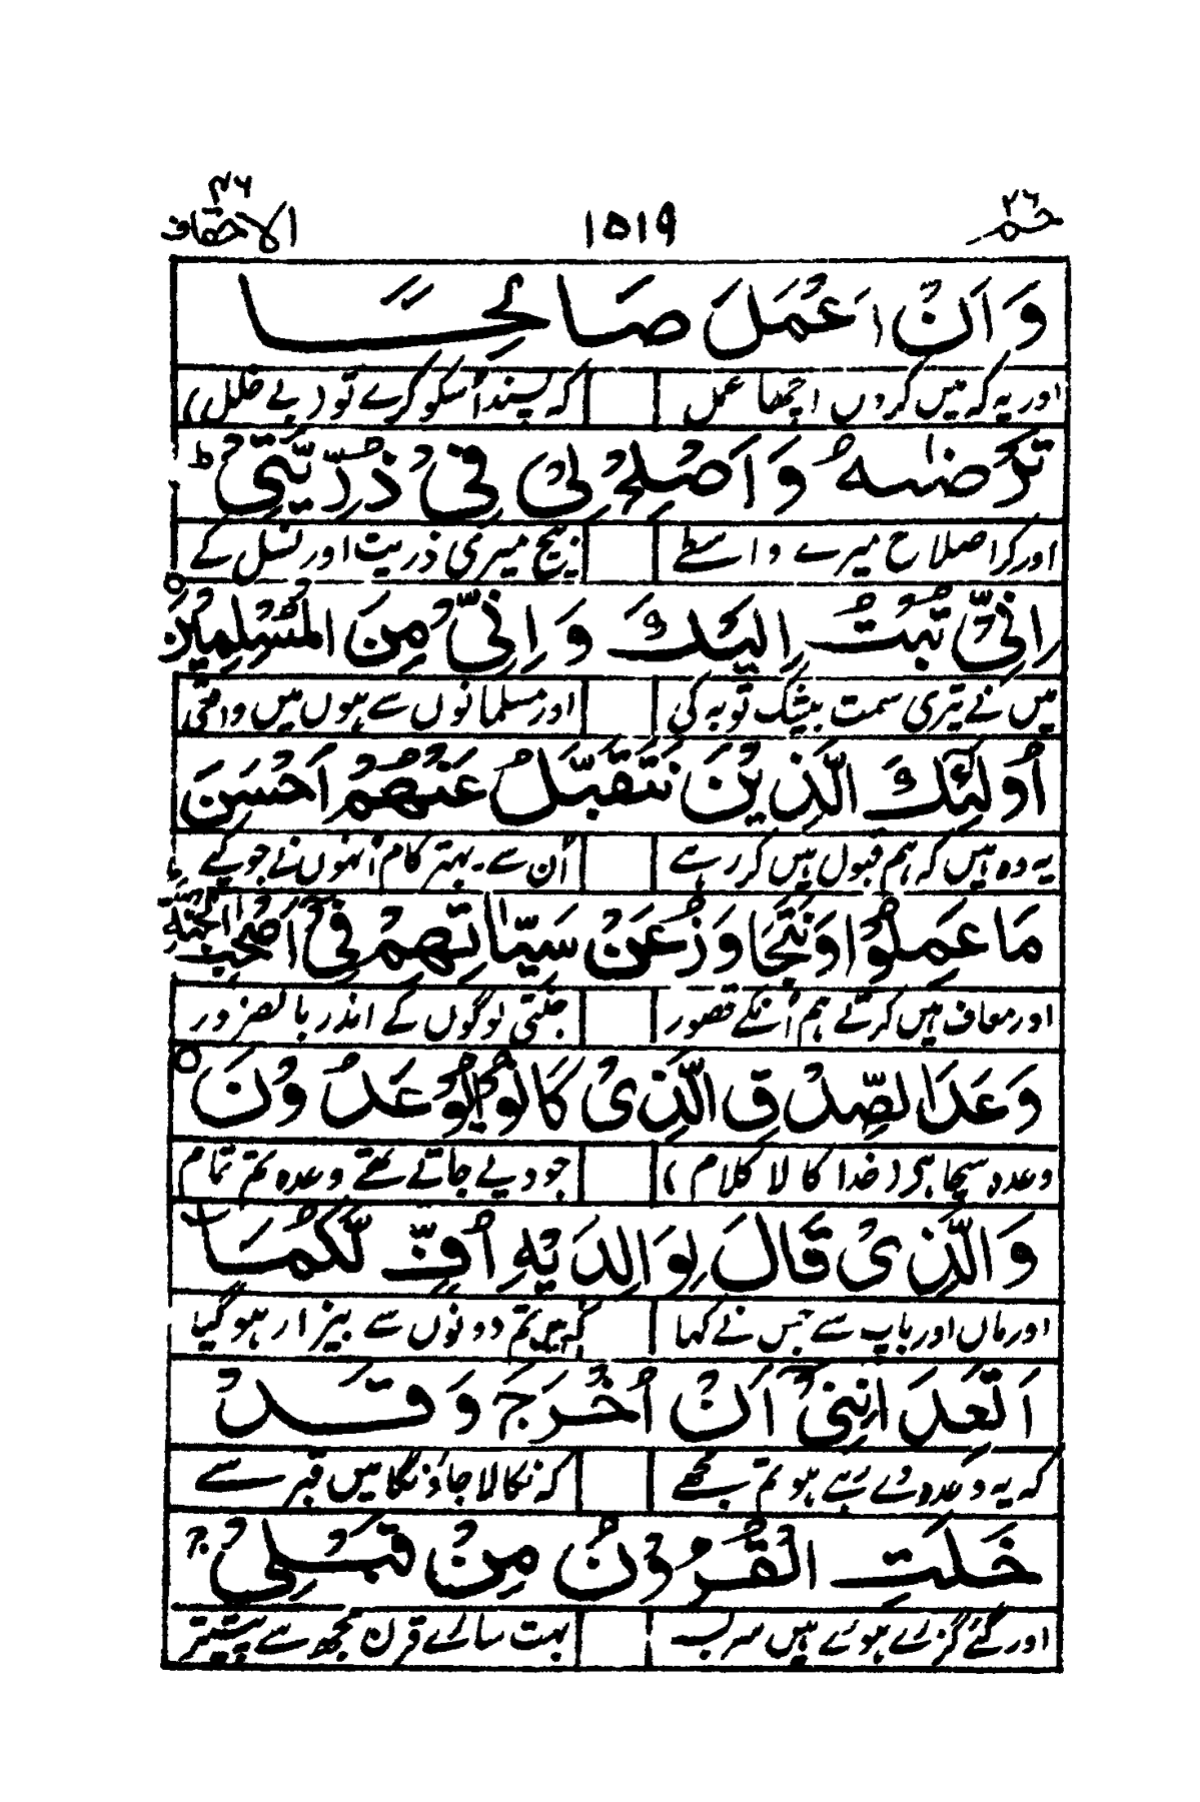 حٰمٓ ٢٦ ١٥١٩ الاحقاف ٤٦
وَاَنْ اَعْمَلَ صَالِحًا
اور یہ کہ میں کروں اچھا عمل کہ پسند اُسکو کرے تو (بے خلل)
تَرْضٰىهُ وَاَصْلِحْ لِیْ فِیْ ذُرِّیَّتِیْ ؕ
اور کر اصلاح میرے واسطے بیچ میری ذریت اور نسل کے
اِنِّیْ تُبْتُ اِلَیْكَ وَاِنِّیْ مِنَ الْمُسْلِمِیْنَ ○
میں نے تیری سمت بیشک توبہ کی اور مسلمانوں سے ہوں میں واقعی
اُولٰٓئِكَ الَّذِیْنَ نَتَقَبَّلُ عَنْهُمْ اَحْسَنَ
یہ وہ ہیں کہ ہم قبول ہیں کر رہے اُن سے ۔ بہتر کام اُنہوں نے جو کیے
مَا عَمِلُوْا وَنَتَجَاوَزُ عَنْ سَیِّاٰتِهِمْ فِیْۤ اَصْحٰبِ الْجَنَّةِ
اور معاف ہیں کرتے ہم اُنکے قصور جنتی لوگوں کے اندر بالضرور
وَعْدَ الصِّدْقِ الَّذِیْ كَانُوْا یُوْعَدُوْنَ ○
وعدہ سچا ہی (خدا کا لا کلام) جو دیے جاتے تھے وعدہ تم تمام
وَالَّذِیْ قَالَ لِوَالِدَیْهِ اُفٍّ لَّكُمَاۤ
اور ماں اور باپ سے جس نے کہا کہ میں تم دونوں سے بیزار ہو گیا
اَتَعِدٰنِنِیْۤ اَنْ اُخْرَجَ وَقَدْ
کہ یہ وعدہ دے رہے ہو تم مجھے کہ نکالا جاؤنگا میں قبر سے
خَلَتِ الْقُرُوْنُ مِنْ قَبْلِیْ ۚ
اور گئے گزرے ہوئے ہیں سر بسر بہت سارے قرن مجھ سے پیشتر